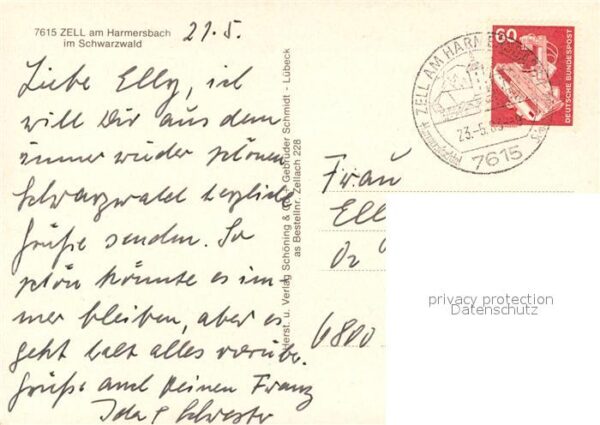 7615 ZELL am Harmersbach
im Schwarzwald
21.5.
Liebe Elly, ich
will Dir aus dem
immer wieder schönen
Schwarzwald herzliche
Grüße senden. So
schön könnte es im-
mer bleiben, aber es
geht halt alles vorüber.
Grüße auch Deinen Franz
Ida & Schwester
Herst. u. Verlag Schöning & Co + Gebrüder Schmidt - Lübeck
as Bestellnr. Zellach 228
ZELL AM HARMERSBACH
23.-5.8
7615
60
DEUTSCHE BUNDESPOST
Frau
Ell
6800
privacy protection
Datenschutz